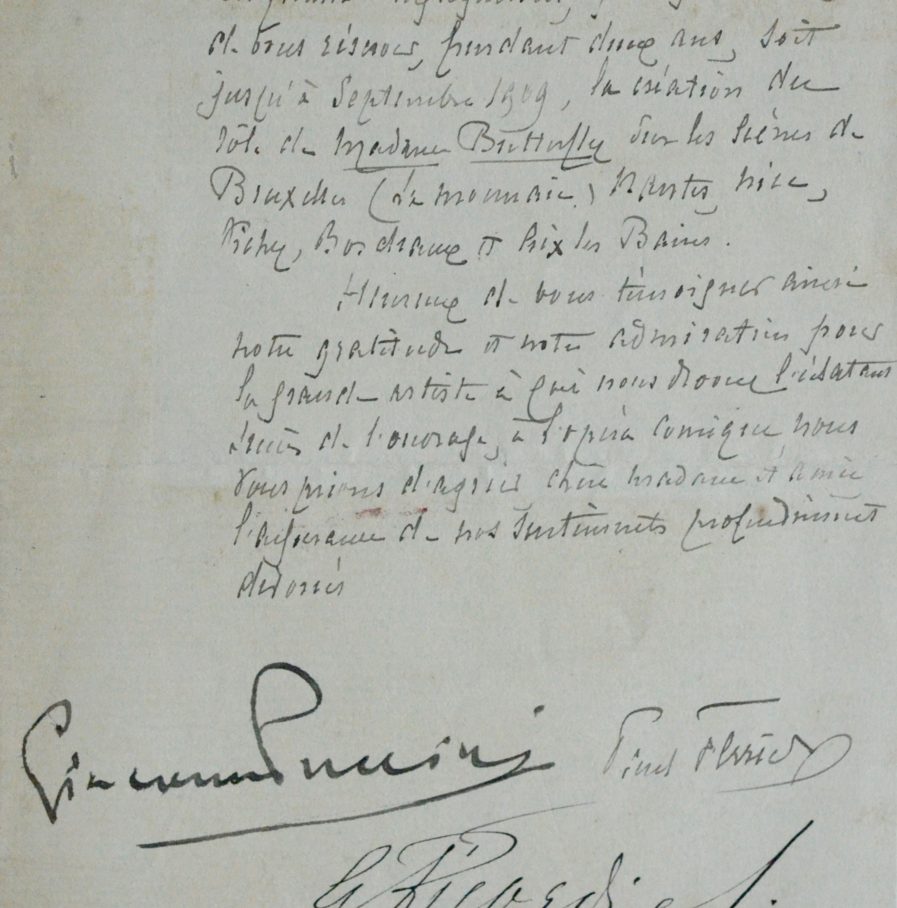 de vous réserver, pendant deux ans, soit
jusqu'à Septembre 1909, la création du
rôle de Madame Butterfly sur les Scènes de
Bruxelles (La monnaie) Nantes, Nice,
Vichy, Bordeaux et Aix les Bains.
Heureux de vous témoigner ainsi
notre gratitude et notre admiration pour
la grande artiste à qui nous devons l'éclatant
succès de l'ouvrage, à l'opéra Comique, nous
vous prions d'agréer chère madame et amie
l'assurance de nos Sentiments profondément
dévoués
Giacomo Puccini
Paul Ferrier
G. Ricordi &